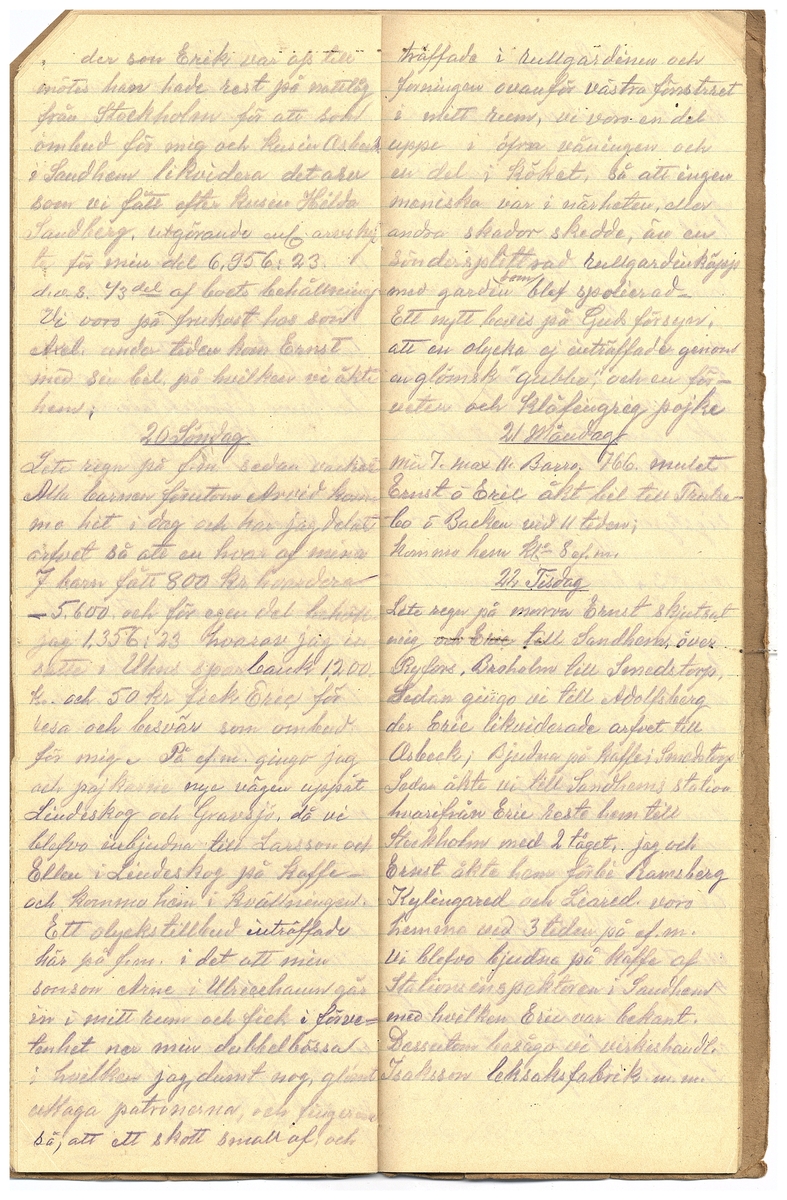 der son Erik var oss till
mötes han hade rest på nattåg
från Stockholm för att som
ombud för mig och kusin Asbeck
i Sandhem likvidera det arv
som vi fått efter kusin Hilda
Sandberg, utgörande arvskif
te för min del 6,956:23.
d.v.s. 1/3 del af boets behållning
Vi voro på frukost hos son
Axel. andra tiden kom Ernst
med sin bil. på hvilken vi åkte
hem;
20 Söndag
Lite regn på f.m. sedan vackert
Alla barnen förutom Arvid kom
mo hit i dag och har jag delat
arfvet så att en hvar af mina
7 barn fått 800 kr hvardera
– 5.600 och för egen del behöll
jag 1.356:23 hvarav jag in
satte i Uhns sparbank 1,200
kr. och 50 kr fick Eric för
resa och besvär som ombud
för mig. På ef.m. gingo jag
och pojkarne nye vägen uppåt
Lindeskog och Gravsjö, då vi
blefvo inbjudna till Larsson och
Ellen i Lindeskog på kaffe –
och kommo hem i kvällningen.
Ett olyckstillbud inträffade
här på f.m. i det att min
sonson Arne i Ulricehamn gås
in i mitt rum och fick i förve=
tenhet ner min dubbelbössa
i hvilken jag, dumt nog, glömt
uttaga patronerna, och fingrade
så, att ett skott small af, och
träffade i rullgardinen och
förningen ovanför västra fönstret
i mitt rum, vi voro en del
uppe i öfra våningen och
en del i köket, så att ingen
meniska var i närheten, eller
andra skador skedde, än en
söndersplittrad rullgardinkäpp
med gardin som blef spolierad –
Ett nytt bevis på Guds försyn,
att en olycka ej inträffade genom
en glömsk "gubbe", och en för –
veten och klåfingrig pojke
21 Måndag
min 7. max 11. Barro, 766. mulet
Ernst o Eric åkt bil till Trälse –
bo o Backen vid 11 tiden;
kommo hem kl 8 ef.m.
22 Tisdag
Lite regn på morron Ernst skjutsat
mig och Eric till Sandhem, över
Ryfors, Broholm till Smedstorp,
Sedan gingo vi till Adolfsberg
der Eric likviderade arfvet till
Asbeck; Bjudna på kaffe i Smedstorp
Sedan åkte vi till Sandhems station
hvarifrån Eric reste hem till
Stockholm med 2 tåget, jag och
Ernst åkte hem förbi Ramsberg
Kylingared och Liared. voro
hemma ved 3 tiden på ef.m.
Vi blefvo bjudna på kaffe af
Stationsinspektoren i Sandhem
med hvilken Eric var bekant.
Dessutom besågo vi virkeshandl.
Isaksson leksaksfabrik m.m.